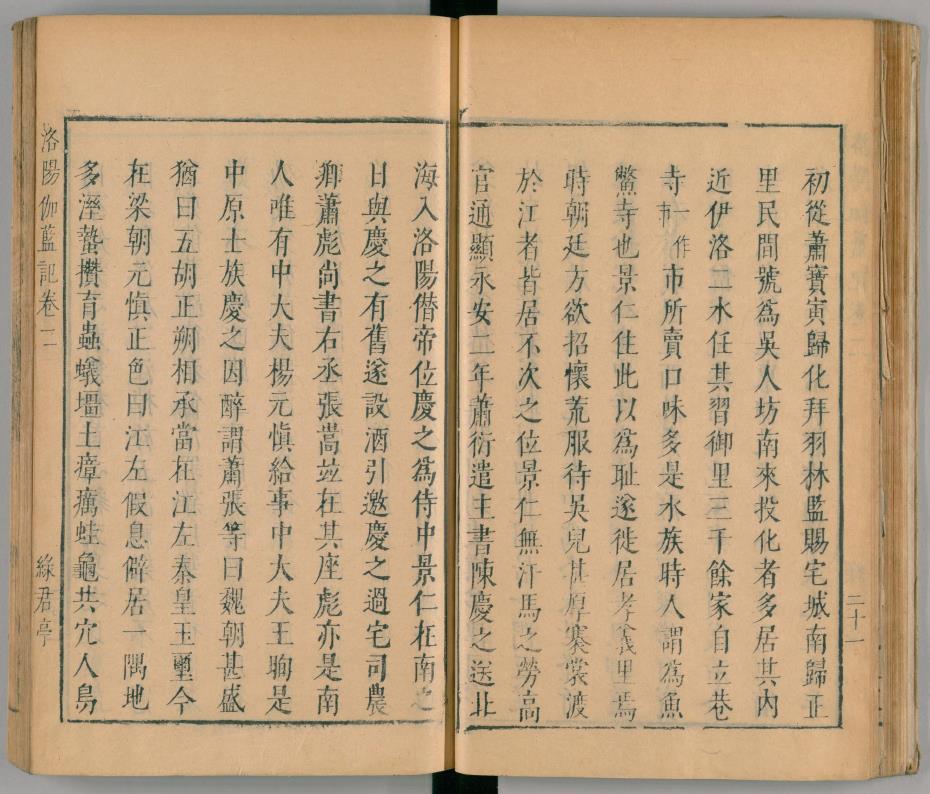 初從蕭寶寅歸化拜羽林監賜宅城南歸正
里民間號爲吳人坊南來投化者多居其內
近伊洛二水任其習御里三千餘家自立巷
寺一作市市所賣口味多是水族時人謂爲魚
鱉寺也景仁住此以爲恥遂徙居孝義里焉
時朝廷方欲招懷荒服待吳兒甚厚褰裳渡
於江者皆居不次之位景仁無汗馬之勞高
官通顯永安二年蕭衍遣主書陳慶之送北
二十一
海入洛陽僭帝位慶之爲侍中景仁在南之
日與慶之有舊遂設酒引邀慶之過宅司農
卿蕭彪尙書右丞張嵩並在其座彪亦是南
人唯有中大夫楊元愼給事中大夫王眴是
中原士族慶之因醉謂蕭張等曰魏朝甚盛
猶曰五胡正朔相承當在江左秦皇玉璽今
在梁朝元愼正色曰江左假息僻居一隅地
多溼蟄攢育蟲蟻壃土瘴癘蛙黽共穴人鳥
洛陽伽藍記卷二
綠君亭